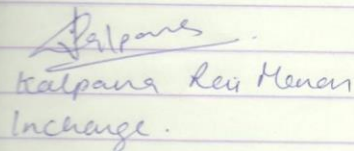 Kalpana
Kalpana Rai Menon
Incharge.